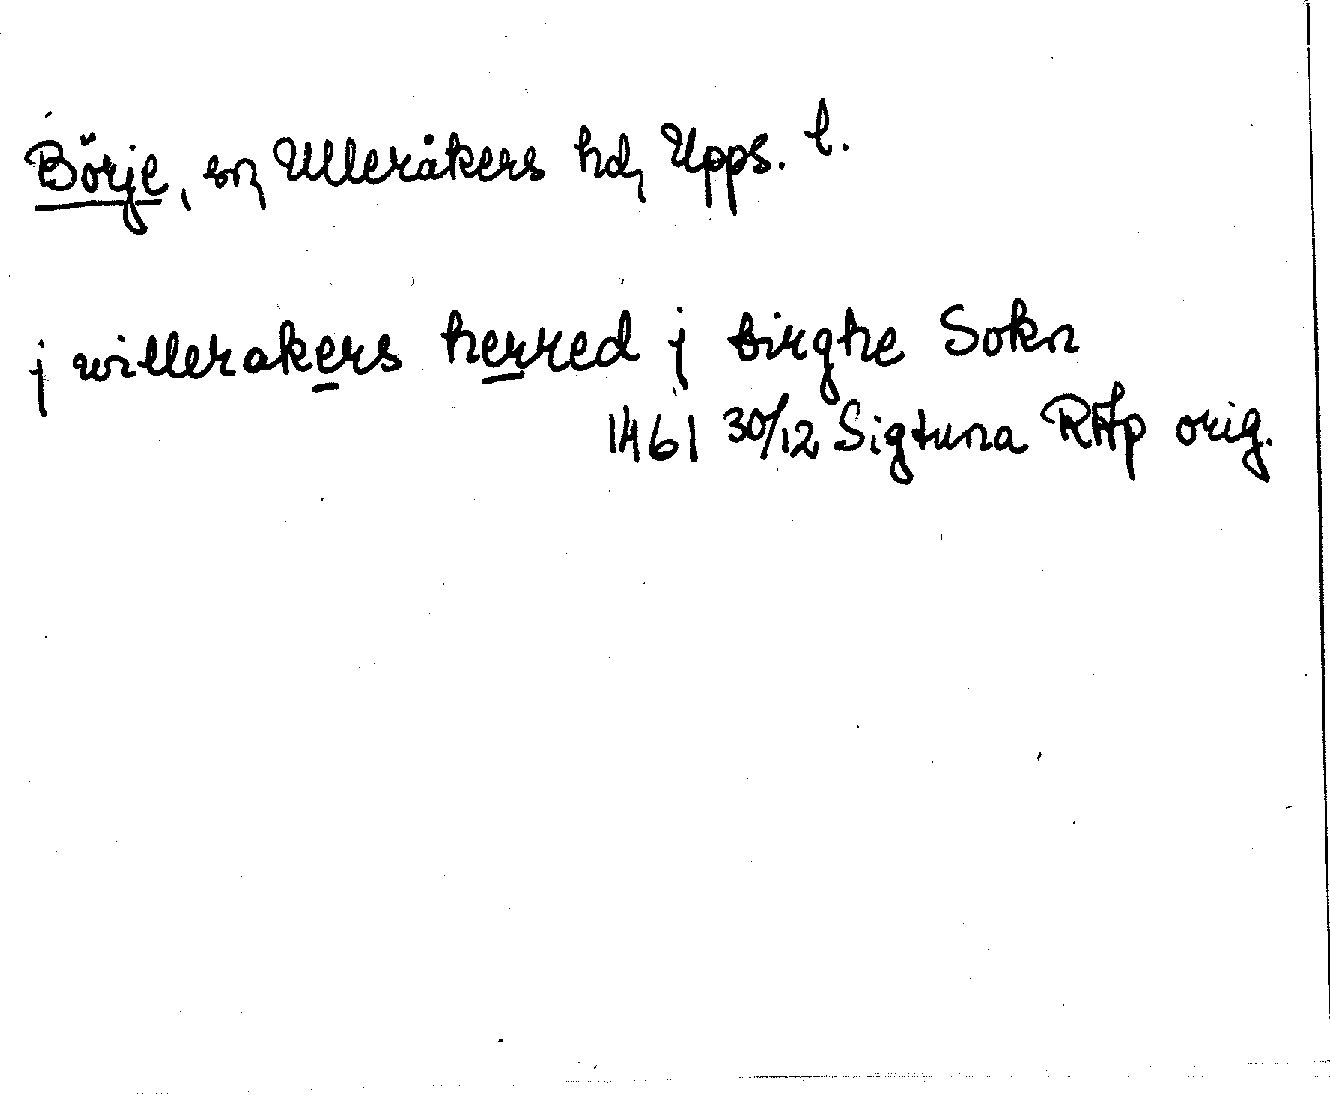 Börje, sn, Ulleråkers hd, Upps. l.
j willerakers herred j birghe Sokn
1461 30/12 Sigtuna RAp orig.